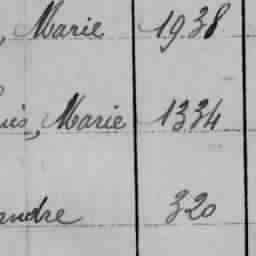 , Marie 1938
uis, Marie 1334
andre 320